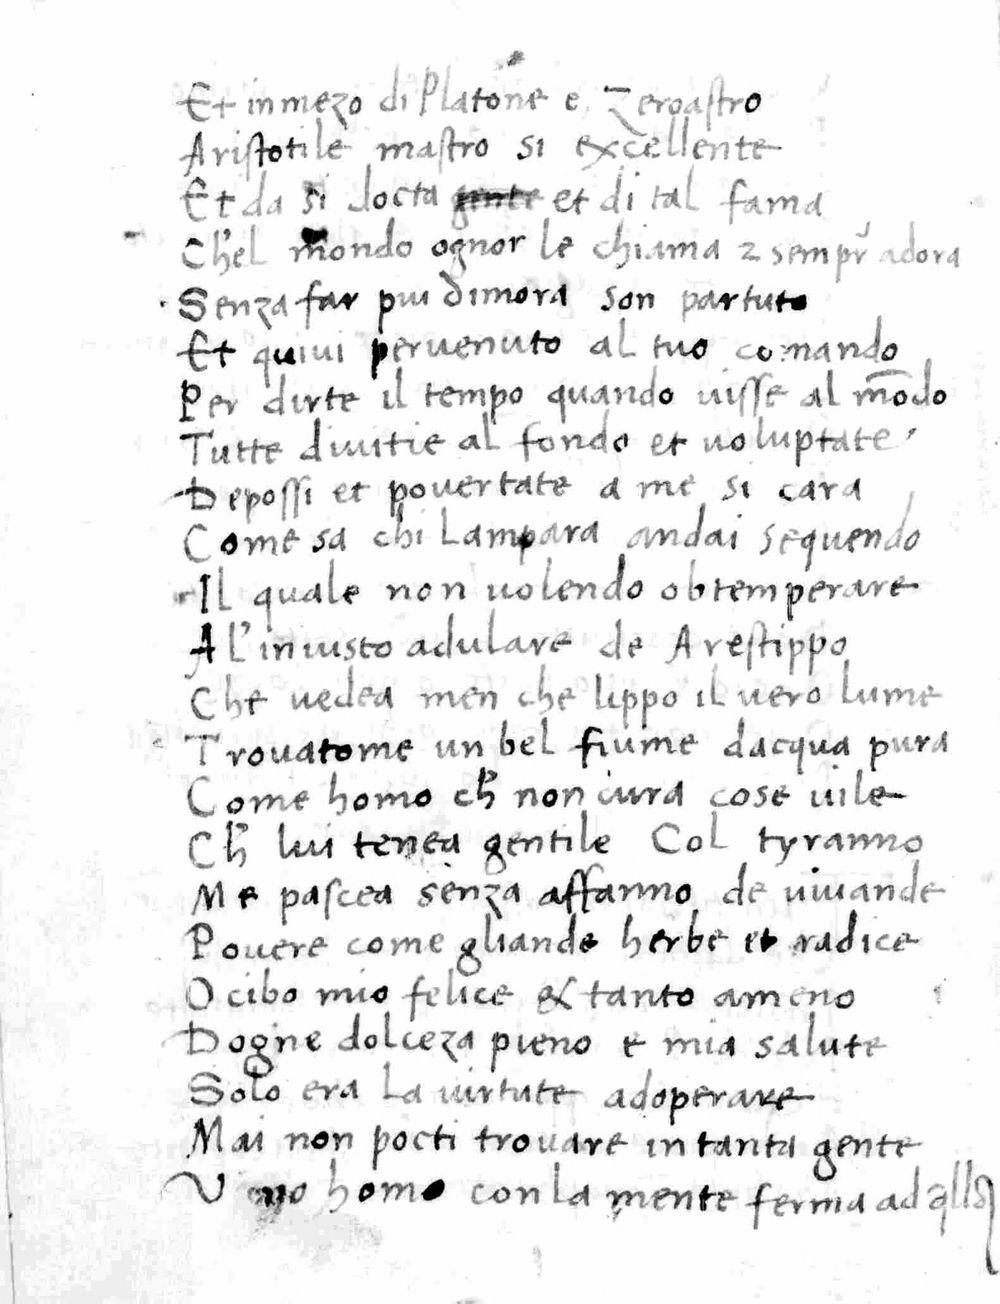 Et in mezo di Platone e Zeroastro
Aristotile mastro si excellente
Et da si docta gente et di tal fama
Ch'el mondo ognor le chiama 2 sempr adora
Senza far piu dimora son partuto
Et quiui peruenuto al tuo comando
Per dirte il tempo quando uisse al mōdo
Tutte diuitie al fondo et uoluptate
Depossi et pouertate a me si cara
Come sa chi Lampara andai sequendo
Il quale non uolendo obtemperare
Al'iniusto adulare de Arestippo
Che uedea men che lippo il uero lume
Trouatome un bel fiume dacqua pura
Come homo ch' non cura cose uile
Ch' lui tenea gentile Col tyranno
Me pascea senza affanno de uiuande
Pouere come gliande herbe et radice
O cibo mio felice & tanto ameno
Dogne dolceza pieno e mia salute
Solo era La uirtute adoperare
Mai non pocti trouare in tanta gente
homo con la mente ferma ad